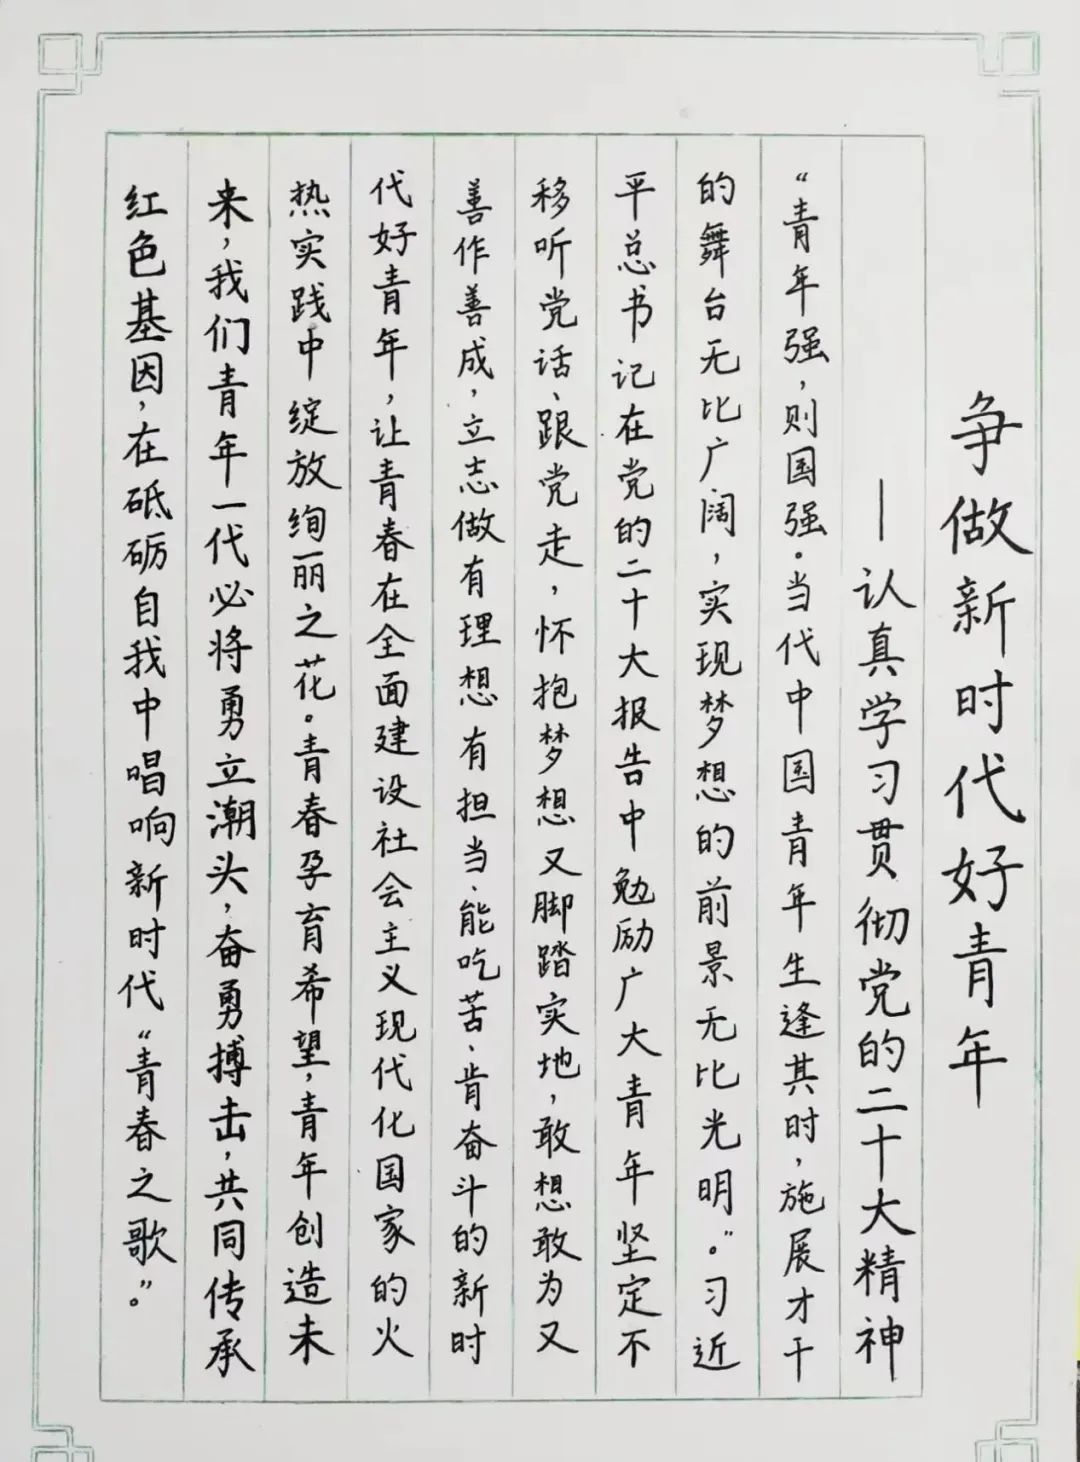 争做新时代好青年
—认真学习贯彻党的二十大精神
“青年强，则国强。当代中国青年生逢其时，施展才干
的舞台无比广阔，实现梦想的前景无比光明。”习近
平总书记在党的二十大报告中勉励广大青年坚定不
移听党话、跟党走，怀抱梦想又脚踏实地，敢想敢为又
善作善成，立志做有理想有担当、能吃苦、肯奋斗的新时
代好青年，让青春在全面建设社会主义现代化国家的火
热实践中绽放绚丽之花。青春孕育希望，青年创造未
来，我们青年一代必将勇立潮头，奋勇搏击，共同传承
红色基因，在砥砺自我中唱响新时代“青春之歌”。